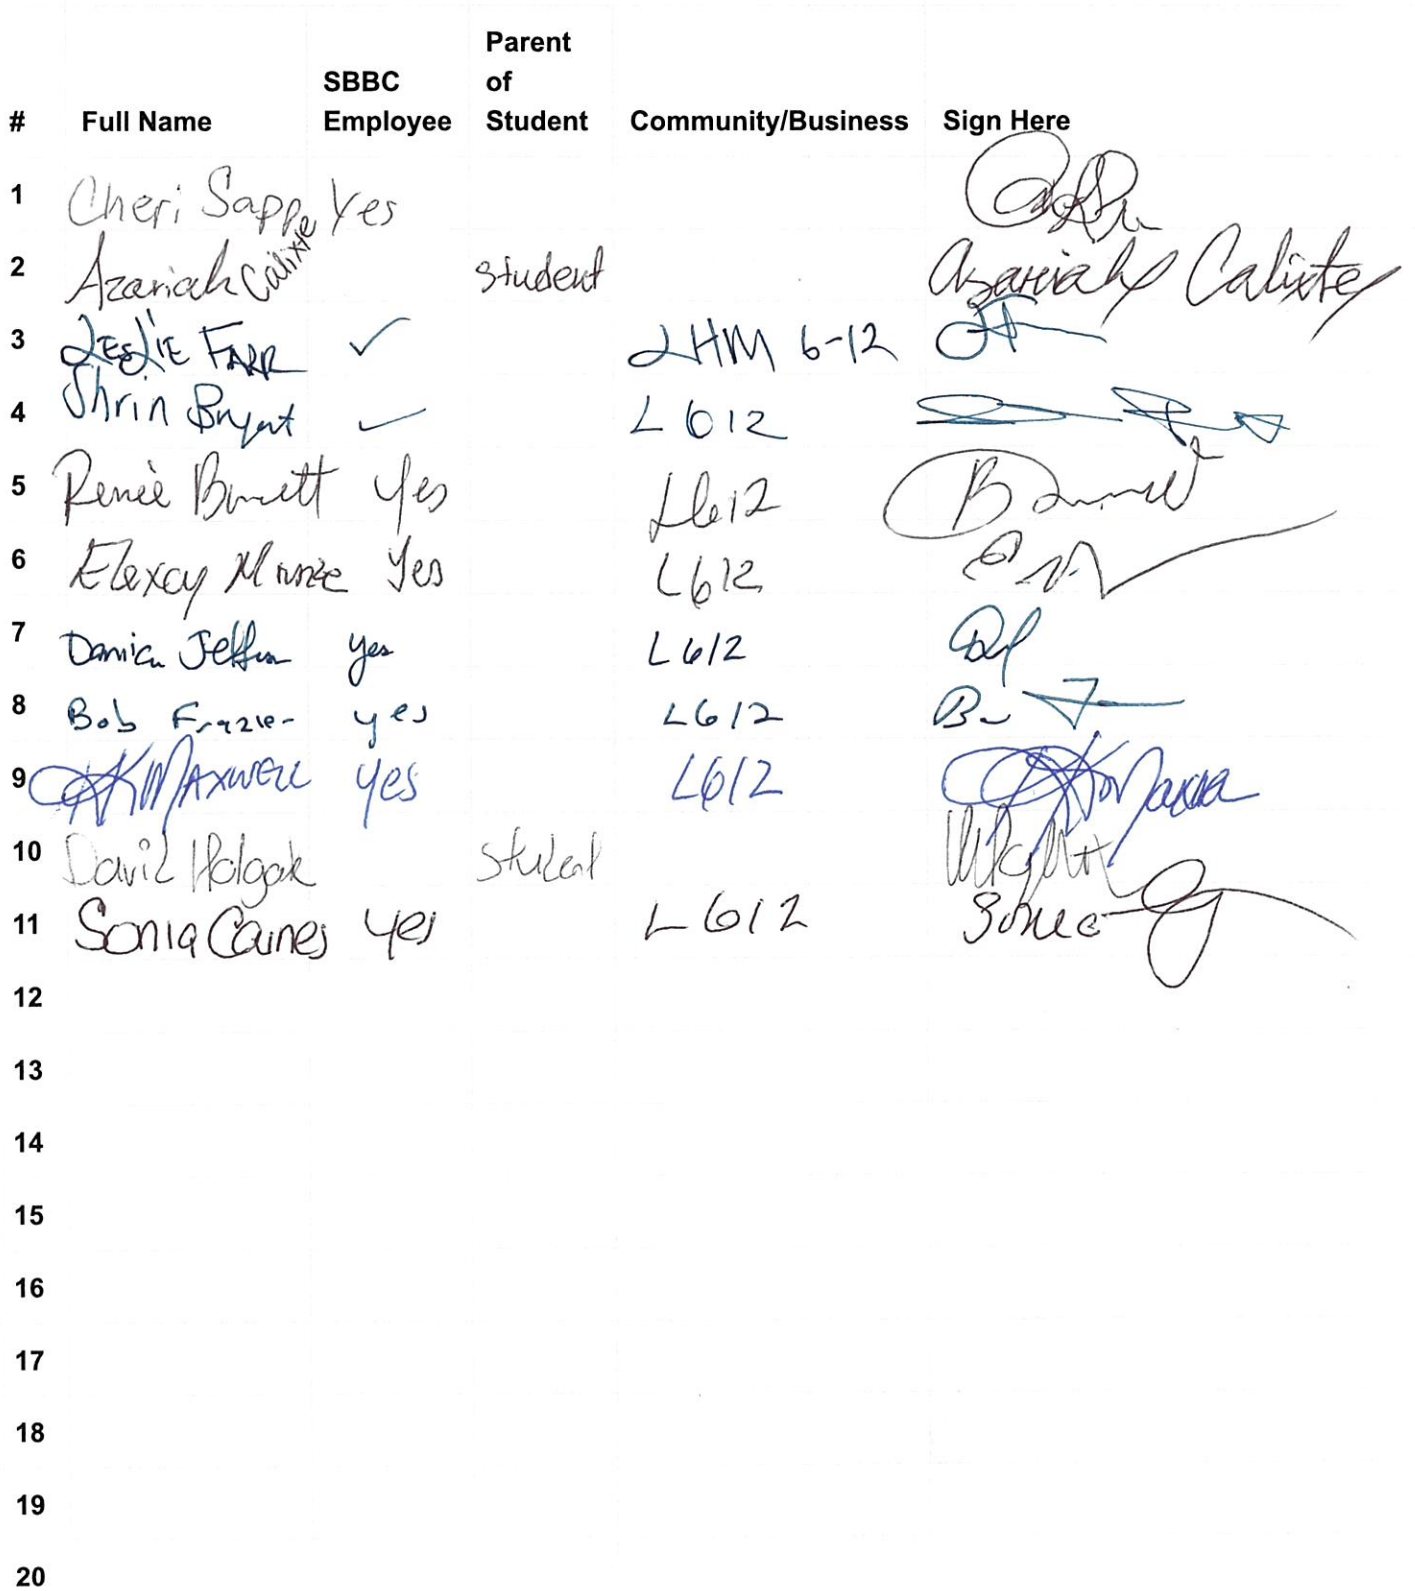 Parent
SBBC of
# Full Name Employee Student Community/Business Sign Here
1 Cheri Sapp Yes
2 Azariah Calixte student Azariah Calixte
3 Leslie Farr ✓ LHM 6-12
4 Shrin Bryant ✓ L612
5 Renée Burnett Yes L612
6 Elexcy Yes L612
7 yes L612
8 Bob Frazier yes L612
9 Maxwell yes L612
10 David Student
11 Sonia Caines yes L612
12
13
14
15
16
17
18
19
20